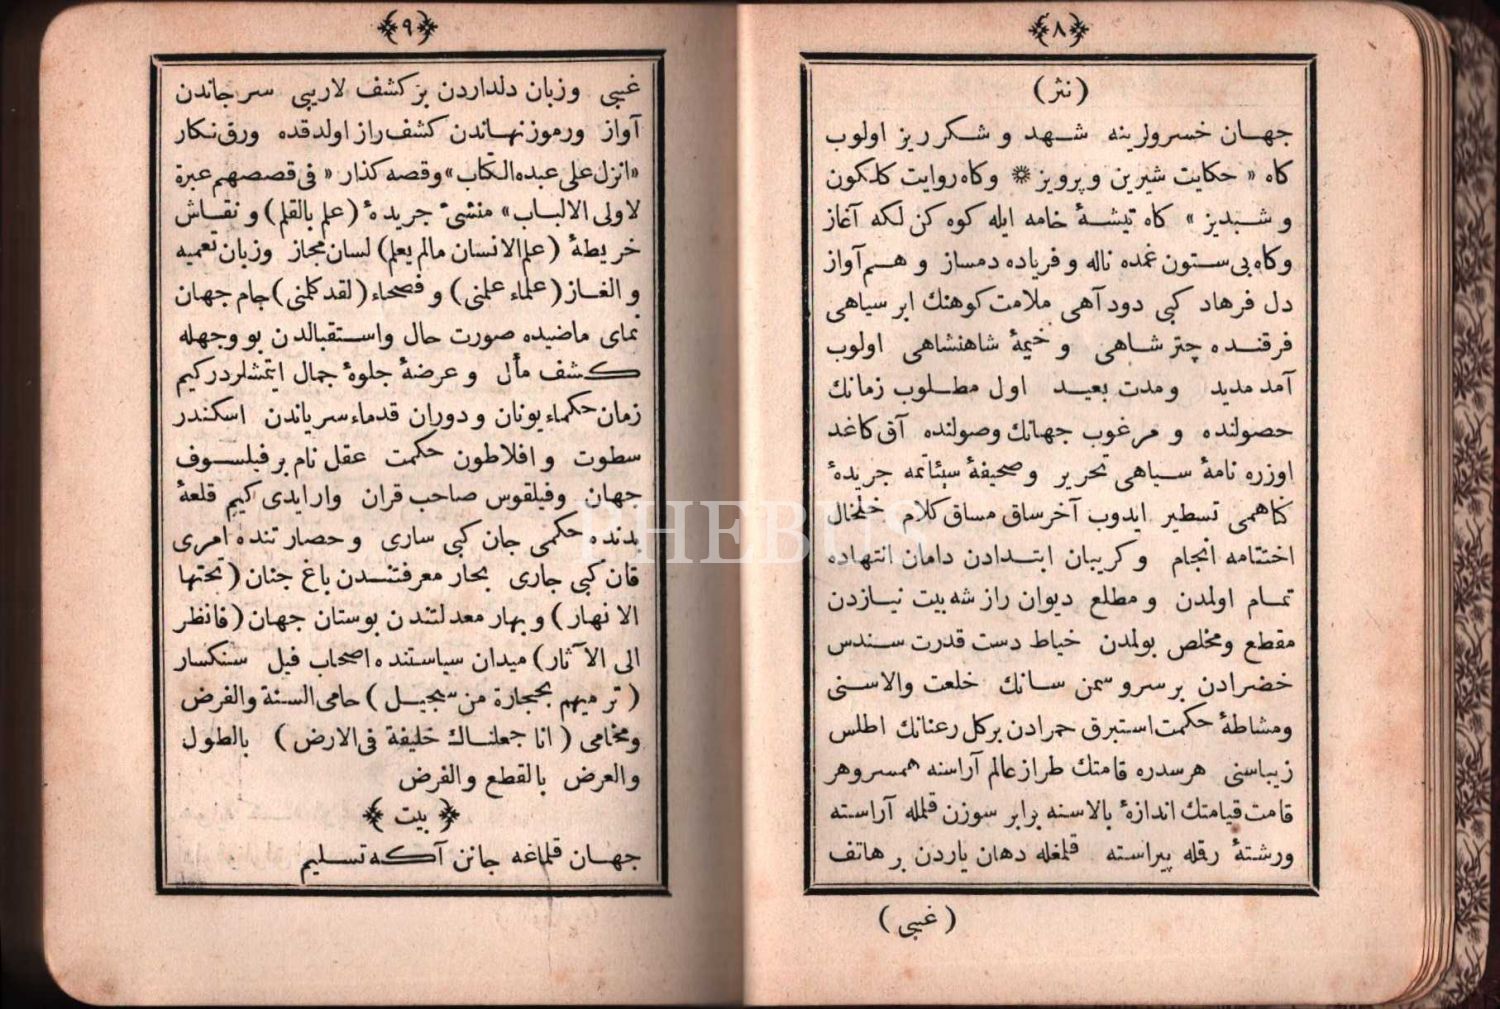 ﴿٨﴾
(نثر)
جهان خسرولرینه شهد و شکر ریز اولوب
کاه « حکایت شیرین و پرویز ❋ وکاه روایت کلکون
و شبدیز » کاه تیشهٔ خامه ایله کوه کن لکه آغاز
وکاه بی ستون غمده ناله و فریاده دمساز و هم آواز
دل فرهاد کبی دود آهی ملامت کوهنك ابر سیاهی
فرقنده چتر شاهی و خیمهٔ شاهنشاهی اولوب
آمد مدید ومدت بعید اول مطلوب زمانك
حصولنده و مرغوب جهانك وصولنده آق کاغد
اوزره نامهٔ سیاهی تحریر و صحیفهٔ سیئاتمه جریدهٔ
کناهمی تسطیر ایدوب آخر ساق مساق کلام خلخال
اختتامه انجام و کریبان ابتدادن دامان انتهاده
تمام اولمدن و مطلع دیوان راز شه بیت نیازدن
مقطع ومخلص بولمدن خیاط دست قدرت سندس
خضرادن بر سرو سمن سانك خلعت والاسنی
ومشاطهٔ حکمت استبرق حمرادن بر کل رعنانك اطلس
زیباسنی هر سدره قامتك طراز عالم آراسنه همسر وهر
قامت قیامتك اندازهٔ بالاسنه برابر سوزن قلمله آراسته
ورشتهٔ رقله پیراسته قلمغله دهان یاردن بر هاتف
(غیبی)
﴿٩﴾
غیبی وزبان دلداردن بر کشف لاریبی سر جاندن
آواز ورموز نهاندن کشف راز اولدقده ورق نکار
«انزل علی عبده الکتاب» وقصه کذار « فی قصصهم عبرة
لاولی الالباب» منشیٔ جریدهٔ (علم بالقلم) و نقاش
خریطهٔ (علم الانسان مالم یعلم) لسان مجاز وزبان تعمیه
و الغاز (علماء علمنی) و فصحاء (لقد کلمنی) جام جهان
نمای ماضیده صورت حال واستقبالدن بو وجهله
کشف مأل و عرضهٔ جلوهٔ جمال ایتمشلردر کیم
زمان حکماء یونان و دوران قدماء سریاندن اسکندر
سطوت و افلاطون حکمت عقل نام بر فیلسوف
جهان وفیلقوس صاحب قران وار ایدی کیم قلعهٔ
بدنده حکمی جان کبی ساری و حصار تنده امری
قان کبی جاری بحار معرفتندن باغ جنان (تحتها
الانهار) و بهار معدلتندن بوستان جهان (فانظر
الی الآثار) میدان سیاستنده اصحاب فیل سنکسار
(ترمیهم بحجارة من سجیل) حامی السنة والفرض
ومحامی (انا جعلناك خلیفة فی الارض) بالطول
والعرض بالقطع والفرض
﴿بیت﴾
جهان قلماغه جانن آکه تسلیم